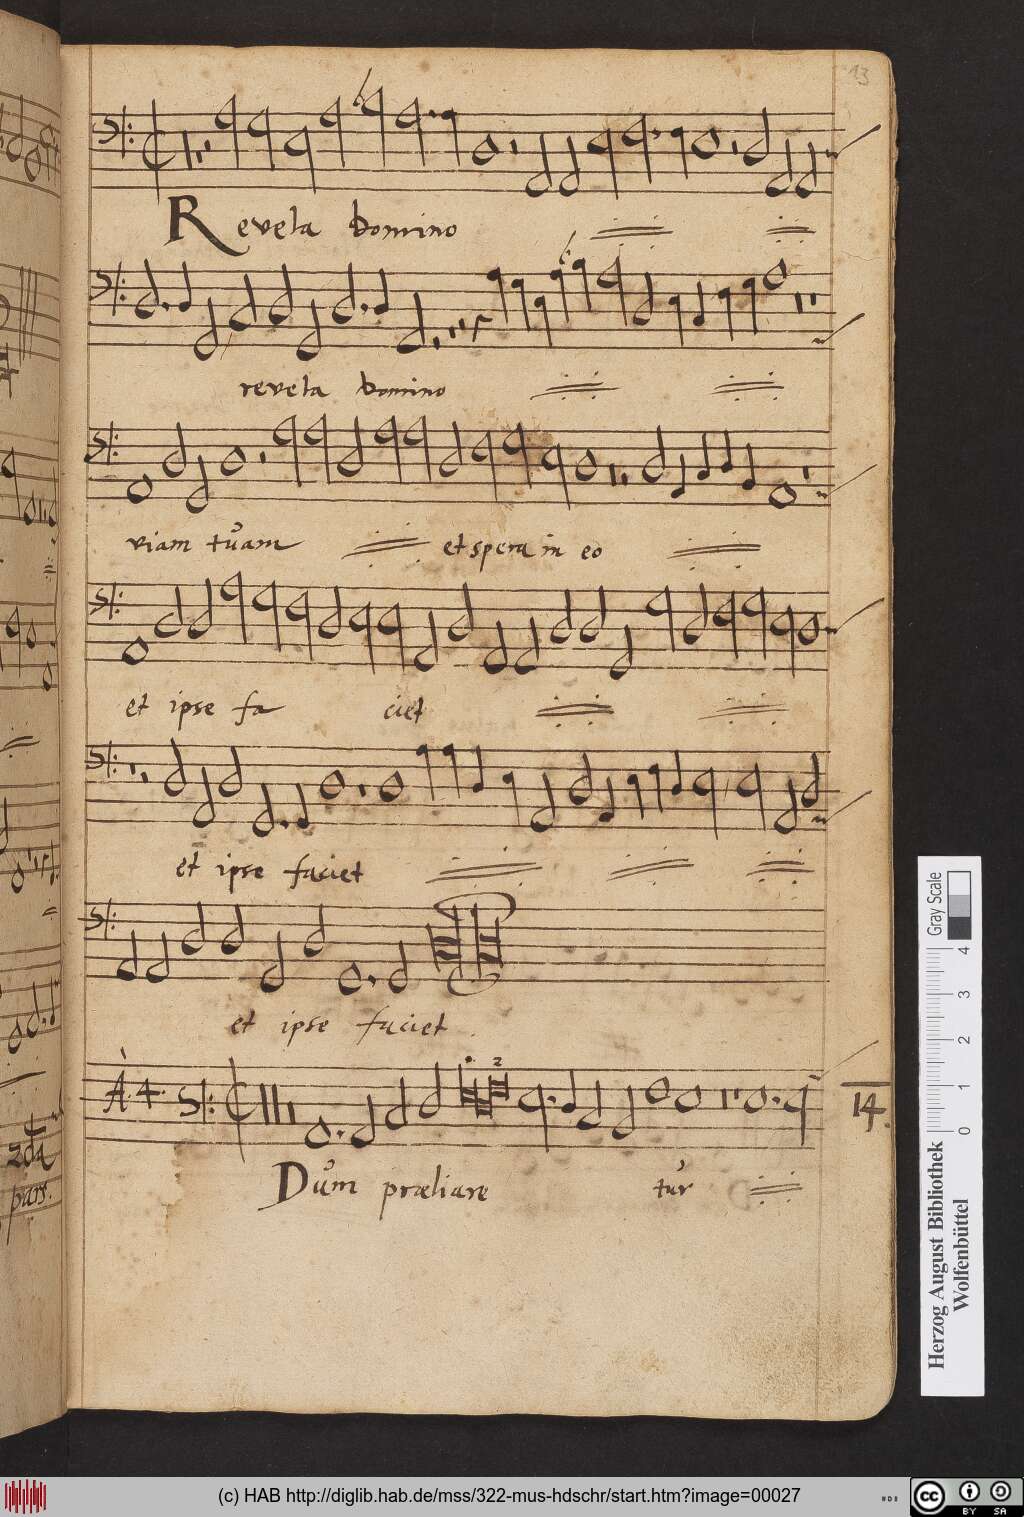 13
Revela Domino
revela Domino
viam tuam et spera in eo
et ipse fa ciet
et ipse faciet
et ipse faciet
A 4.
14.
Dum præliare tur
2da
pars.
Gray Scale
0 1 2 3 4
Herzog August Bibliothek
Wolfenbüttel
(c) HAB http://diglib.hab.de/mss/322-mus-hdschr/start.htm?image=00027
cc BY SA